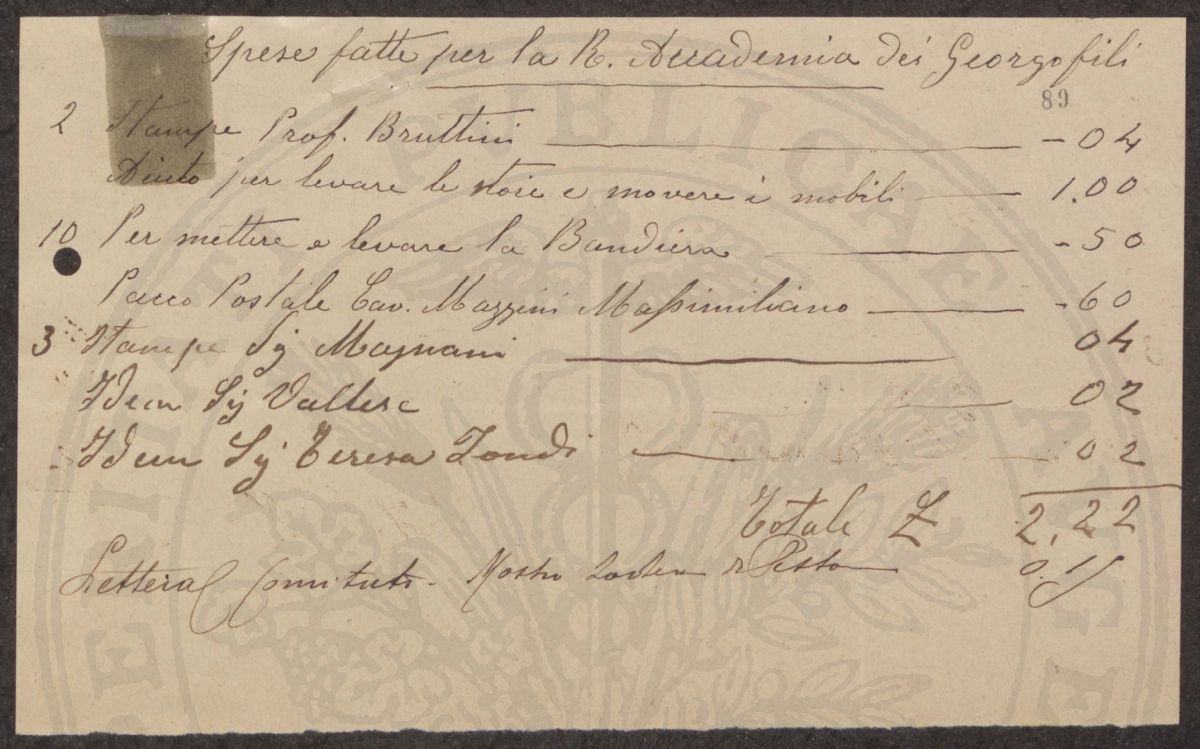 Spese fatte per la R. Accademia dei Georgofili
89
2 Stampe Prof. Bruttini - 04
Aiuto per levare le stoie e movere i mobili 1.00
10 Per mettere e levare la Bandiera - 50
Pacco Postale Cav. Mazzini Massimiliano - 60
3 Stampe Sig Magnani 04
Idem Sig Vallese 02
Idem Sig Teresa 02
Totale £ 2,22
Lettera 0.15
PERENNITATI PUBLICAE AUGE